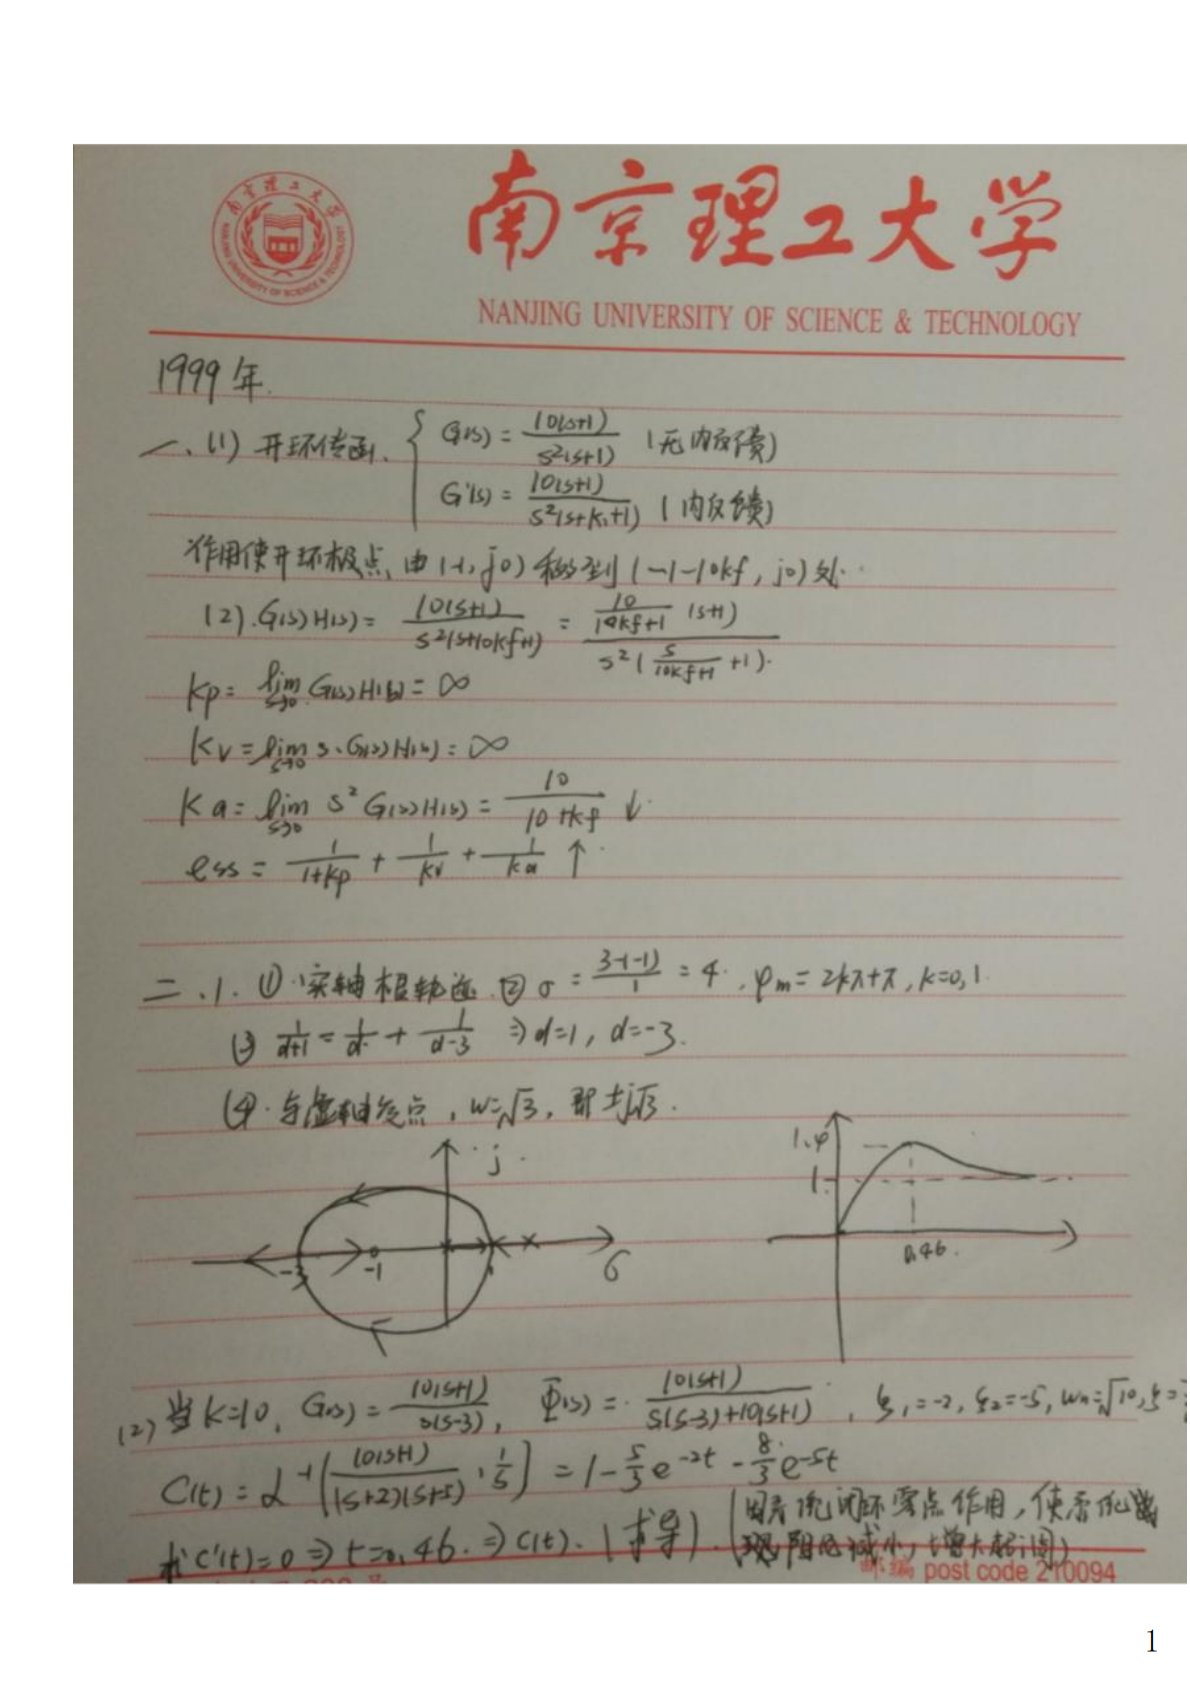 南京理工大学
NANJING UNIVERSITY OF SCIENCE & TECHNOLOGY
1999年.
一、(1) 开环传函. { G(s) = 10(s+1) / s²(s+1) (无内反馈)
G'(s) = 10(s+1) / s²(s+K₁+1) (内反馈)
作用使开环极点由(-1, j0)移到(-1-10kf, j0)处.
(2). G(s)H(s) = 10(s+1) / s²(s+10kf+1) = 10/(10kf+1) (s+1) / s²( s/(10kf+1) +1).
Kp = lim s→0 G(s)H(s) = ∞
Kv = lim s→0 s·G(s)H(s) = ∞
Ka = lim s→0 s² G(s)H(s) = 10 / 10+kf ↓.
ess = 1/(1+Kp) + 1/Kv + 1/Ka ↑
二、1. ① 实轴根轨迹. ② σ = 3-(-1) / 1 = 4. , φm = 2kπ+π, k=0,1.
③ 1/(d+1) = 1/d + 1/(d-3) ⇒ d=1, d=-3.
④. 与虚轴交点, w=√3, 即±j√3.
j
-3 -1 0 1 σ
1.4
1
0.46.
(2) 当K=10, G(s) = 10(s+1) / s(s-3), Φ(s) = 10(s+1) / s(s-3)+10(s+1) , ξ₁=-2, ξ₂=-5, wn=√10, ξ=
C(t) = L⁻¹( 10(s+1) / (s+2)(s+5) · 1/s ) = 1 - 5/3 e^-2t - 8/3 e^-5t
求C'(t)=0 ⇒ t=0.46. ⇒ C(t). (求导). (因系统闭环零点作用, 使系统出
现阻尼减小, 增大超调)
邮编 post code 210094
1